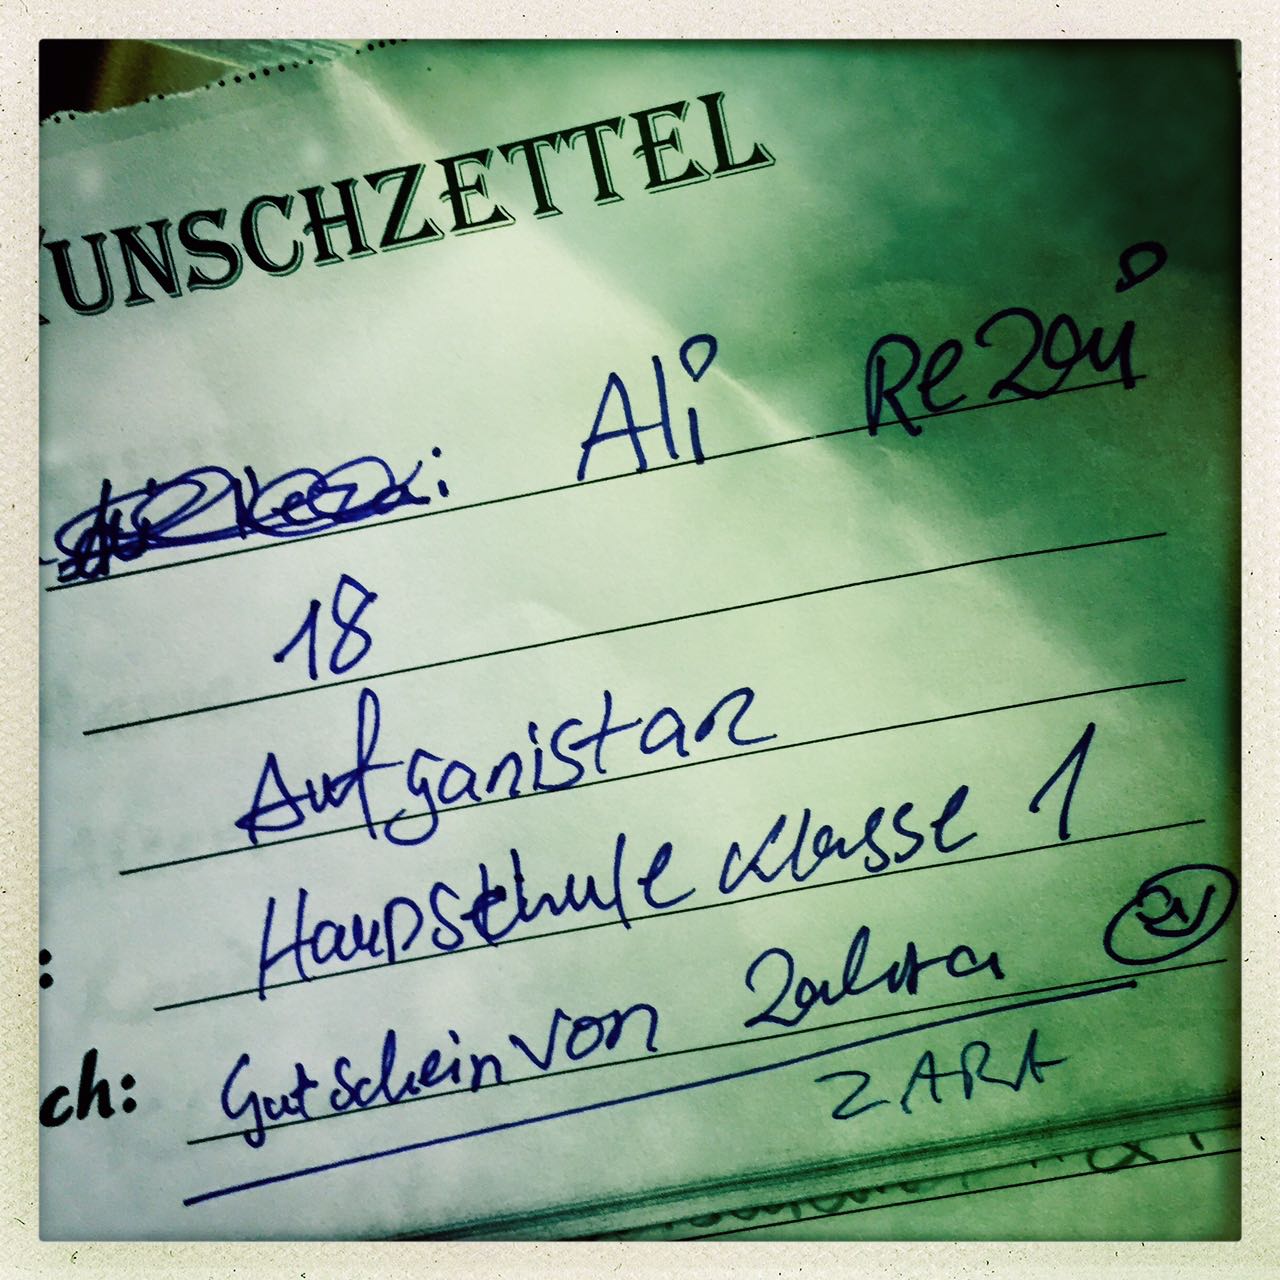 WUNSCHZETTEL
Ali Rezai
18
Aufganistan
: Haupschule Klasse 1
ch: Gutschein von Zahra
ZARA